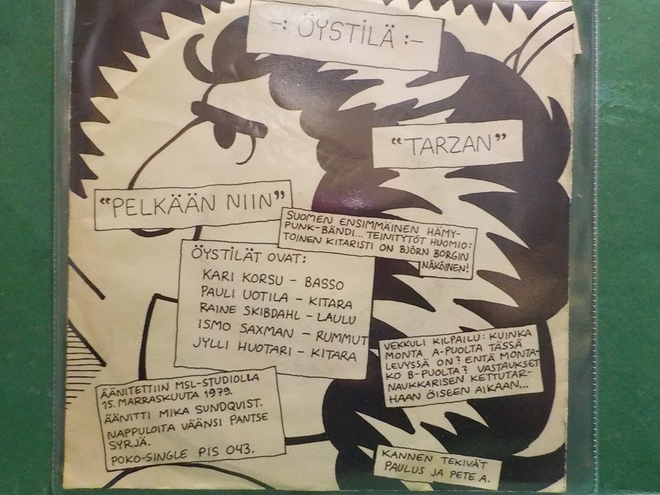 -: ÖYSTILÄ :-
"TARZAN"
"PELKÄÄN NIIN"
SUOMEN ENSIMMÄINEN HÄMY-
PUNK-BÄNDI... TEINITYTÖT HUOMIO:
TOINEN KITARISTI ON BJÖRN BORGIN
NÄKÖINEN!
ÖYSTILÄT OVAT:
KARI KORSU - BASSO
PAULI UOTILA - KITARA
RAINE SKIBDAHL - LAULU
ISMO SAXMAN - RUMMUT
JYLLI HUOTARI - KITARA
VEKKULI KILPAILU: KUINKA
MONTA A-PUOLTA TÄSSÄ
LEVYSSÄ ON? ENTÄ MONTA-
KO B-PUOLTA? VASTAUKSET
NAUKKARISEN KETTUTAR-
HAAN ÖISEEN AIKAAN...
ÄÄNITETTIIN MSL-STUDIOLLA
15. MARRASKUUTA 1979.
ÄÄNITTI MIKA SUNDQVIST.
NAPPULOITA VÄÄNSI PANTSE
SYRJÄ.
POKO-SINGLE PIS 043.
KANNEN TEKIVÄT
PAULUS JA PETE A.